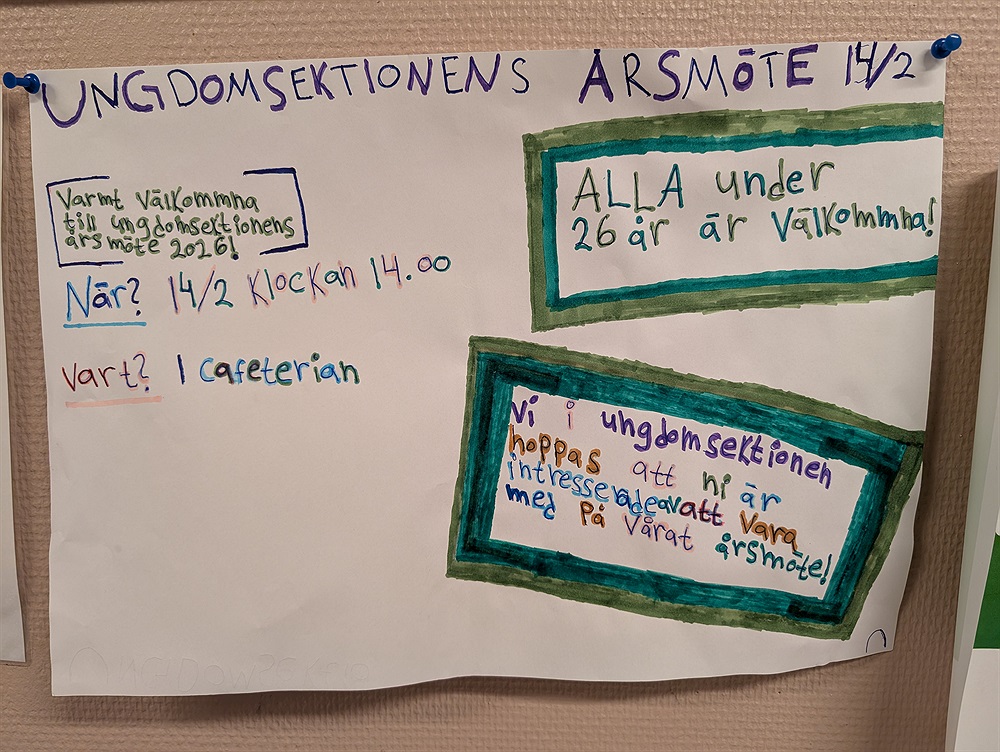 UNGDOMSEKTIONENS ÅRSMÖTE 14/2
Varmt välkommna
till ungdomsektionens
årsmöte 2026!
När? 14/2 Klockan 14.00
Vart? I cafeterian
ALLA under
26 år är välkommna!
Vi i ungdomsektionen
hoppas att ni är
intresserade av att vara
med på vårat årsmöte!